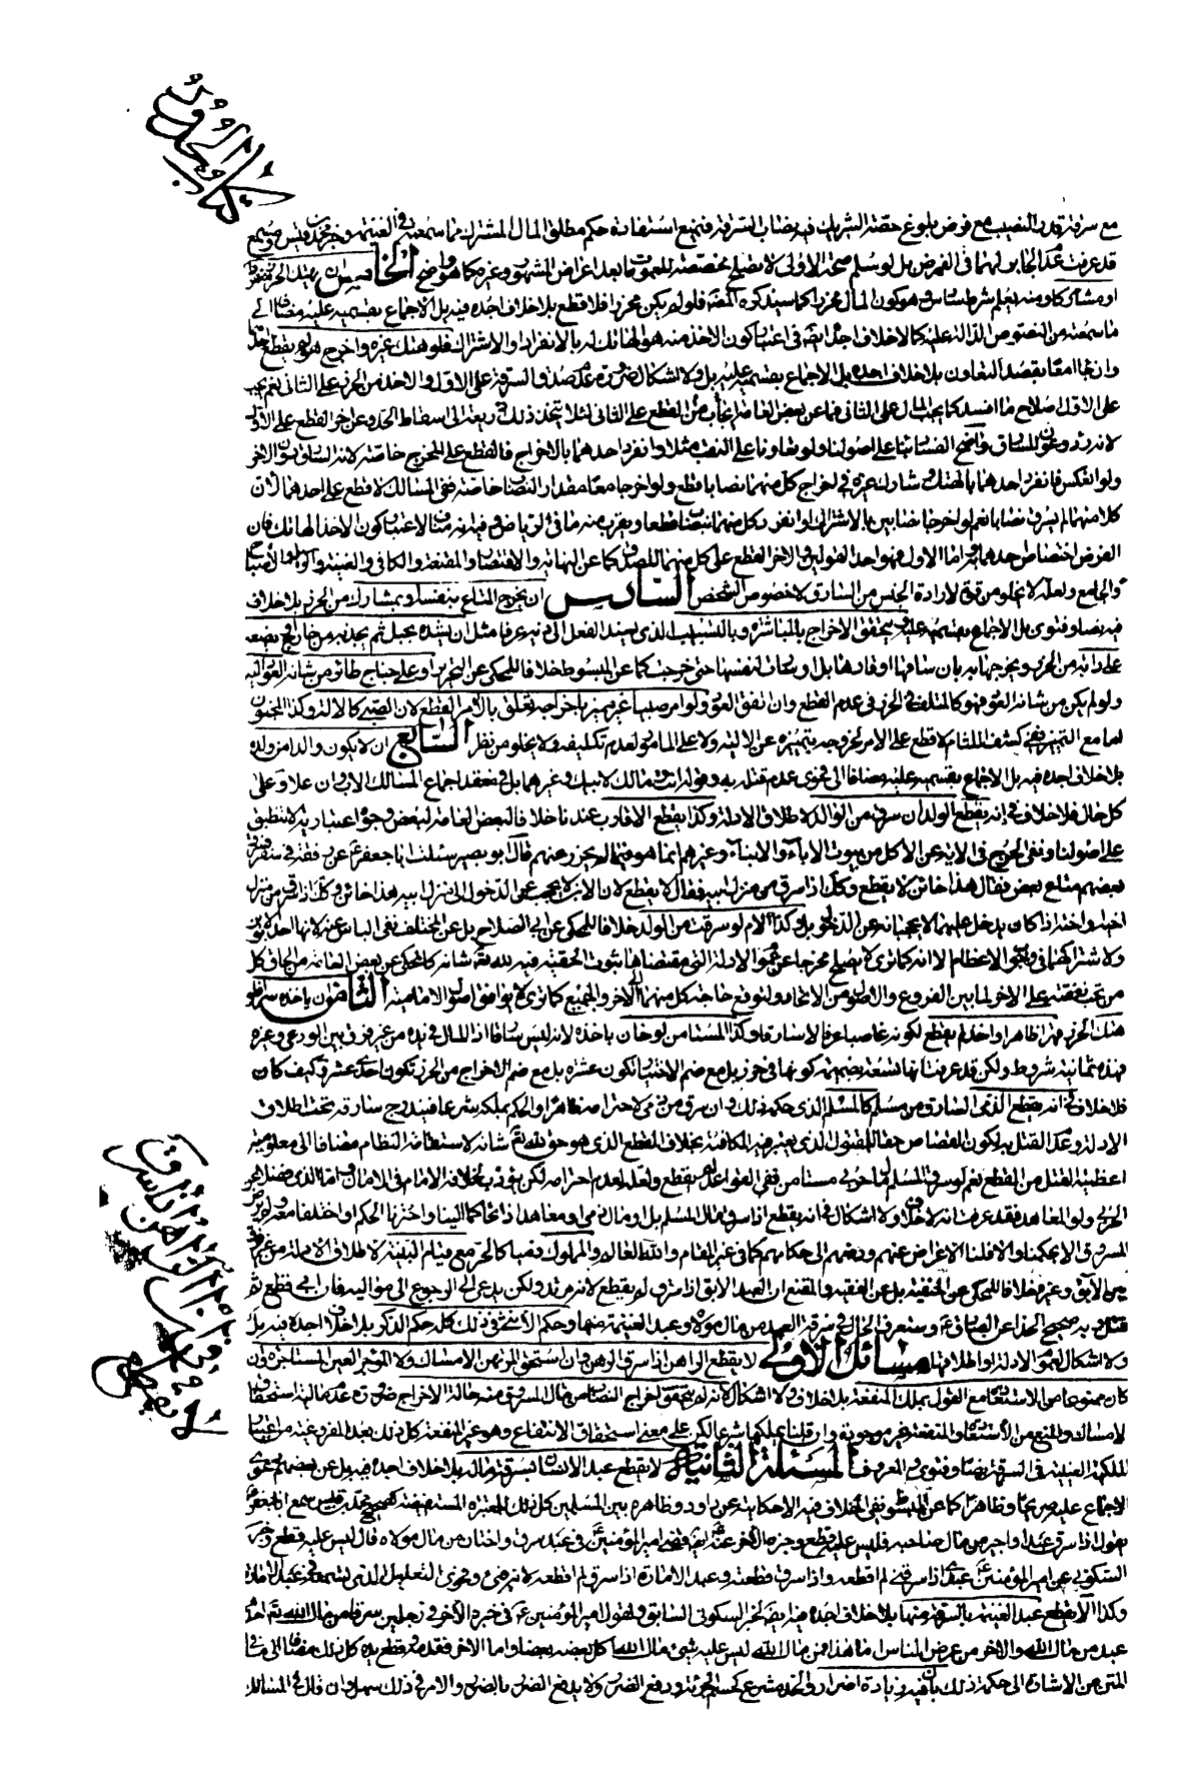 كتاب الحدود
مع سرقة قدر النصيب مع فرض بلوغ حصة الشريك فيه نصاب السرقة فتمنع استفادة حكم مطلق المال المشترك مما سمعته في الغنيمة وخبر محمد بن قيس وصحيح
قد عرفت عدم الجابر لهما في الفرض بل لو سلم صحة الاولى لا تصلح مخصصة للعمومات بعد اعراض المشهور وغيره كما هو واضح الخامس ان يهتك الحرز منفردا
او مشاركا ومنه يعلم شرط سادس وهو كون المال محرزا كما سيذكره المصنف فلو لم يكن محرزا فلا قطع بلا خلاف اجده فيه بل الاجماع بقسميه عليه مضافا الى
ما سمعته من النصوص الدالة عليه كما لا خلاف اجده ايضا في اعتبار كون الاخذ منه هو الهاتك له بالانفراد او الاشتراك فلو هتك غيره واخرج هو لم يقطع احدهما
وان جاءا معا بقصد التعاون بلا خلاف اجده بل الاجماع بقسميه عليه بل ولا اشكال ضرورة عدم صدق السرقة على الاول والاخذ من الحرز على الثاني نعم يجب
على الاول اصلاح ما افسد كما يجب المال على الثاني فما عن بعض العامة من القطع على الثاني لئلا يتخذ ذلك ذريعة الى اسقاط الحد وعن اخر القطع على الاول
لانه ردء وعون للسارق واضح الفساد بناء على اصولنا ولو تعاونا على النقب مثلا وانفرد احدهما بالاخراج فالقطع على المخرج خاصة لانه السارق دون الاخر
ولو انعكس فانفرد احدهما بالهتك وشارك غيره في اخراج كل منهما نصابا قطع ولو اخرجا معا مقدار النصاب خاصة ففي المسالك لا قطع على احدهما لان
كلا منهما لم يسرق نصابا نعم لو اخرجا نصابين بالاشتراك او انفرد كل منهما بنصاب قطعا ويقرب منه ما في الرياض وفيه
الفرض اختصاص احدهما واما الاول فهو احد القولين والاخر القطع على كل منهما للصدق كما عن النهاية والانتصار والمقنعة والكافي والغنية
والجامع ولعله لا يخلو من قوة لارادة الجنس من السارق لا خصوص الشخص السادس ان يخرج المتاع بنفسه او بمشارك من الحرز بلا خلاف
فيه نصا وفتوى بل الاجماع بقسميه عليه ويتحقق الاخراج بالمباشرة وبالتسبيب الذي يسند الفعل الى ذيه عرفا مثل ان يشده بحبل ثم يجذبه من خارج او يضعه
على دابة من الحرز ويخرجها به بان ساقها او قادها بل او سارت لنفسها حتى خرجت كما عن المبسوط خلافا للمحكي عن التحرير او على جناح طائر من شانه العود اليه
ولو لم يكن من شانه العود فهو كالمتلف في الحرز في عدم القطع وان اتفق العود ولو امر صبيا غير مميز باخراجه تعلق بالامر القطع لان الصبي كالالة وكذا المجنون
اما مع التمييز ففي كشف اللثام لا قطع على الامر لخروجه بتميزه عن الالية ولا على المامور لعدم تكليفه ولا يخلو من نظر السابع ان لا يكون والدا من ولده
بلا خلاف اجده فيه بل الاجماع بقسميه عليه مضافا الى فحوى عدم قتله به وقوله انت ومالك لابيك وغيرهما بل في معقد اجماع المسالك الاب وان علا وعلى
كل حال فلا خلاف في انه يقطع الولد ان سرق من الوالد لاطلاق الادلة وكذا يقطع الاقارب عندنا خلافا لبعض العامة لبعض وجوه اعتبارية لا تنطبق
على اصولنا ونفي الحرج في الاية عن الاكل من بيوت الاباء والابناء وغيرهم انما هو فيما لم يحرز عنهم قال ابو بصير سئلت ابا جعفر ع عن رفقة في سفر سرق
بعضهم متاع بعض فقال هذا خائن لا يقطع وكك اذا سرق من منزل ابيه فقال لا يقطع لان الابن لا يحجب عن الدخول الى منزل ابيه هذا خائن وكك اذا سرق من منزل
اخيه واخته اذا كان يدخل عليهما لا يحجبانه عن الدخول بل وكذا الام لو سرقت من الولد خلافا للمحكي عن ابي الصلاح بل عن المختلف نفي الباس عنه لانها احد الابوين
ولاشتراكهما في وجوب الاعظام الا انه كما ترى لا يصلح مخرجا عن عموم الادلة التي مقتضاها ثبوت الحق فيه لله تعالى شانه كالمحكي عن بعض العامة من الحاق كل
من تجب نفقته على الاخر لما بين الفروع والاصول من الاتحاد ولتوقع حاجة كل منهما الى الاخر والجميع كما ترى لا يوافق اصول الامامية الثامن ان ياخذه سرا فلو
هتك الحرز قهرا ظاهرا واخذ لم يقطع لكونه غاصبا عرفا لا سارقا وكذا المستامن لو خان باخذه لانه ليس سارقا اذ المال في يده من غير فرق بين الودعي وغيره
فهذه ثمانية شروط ولكن قد عرفت انها تسعة بضميمة كونها في حرز بل مع ضم الانتساب تكون عشرة بل مع ضم الاخراج من الحرز تكون احدى عشرة وكيف كان
فلا خلاف في انه يقطع الذمي السارق من مسلم كالمسلم الذي حكمه ذلك وان سرق من ذمي لاحترامه ظاهرا والحكم بملكه شرعا فيندرج سارقه تحت اطلاق
الادلة وعدم القتل به لكون القصاص حقا للمقتول الذي يعتبر فيه المكافئة بخلاف القطع الذي هو حق لله تعالى شانه لاستقامة النظام مضافا الى معلومية
اعظمية القتل من القطع نعم لو سرق المسلم مال حربي مستامن ففي القواعد لم يقطع ولعله لعدم احترامه لكن يؤدب بخلافة الامام في الامان واما الذي
الحربي ولو المعاهد فقد عرفت انه لا خلاف ولا اشكال في انه يقطع اذا سرق مال المسلم بل ومال ذمي ومعاهد اذا تحاكما الينا واخترنا الحكم او اختلفا معه
المسروق والا يمكننا والا فلنا الاعراض عنهم ورفعهم الى حكامهم كما في غير المقام والله العالم والمملوك رقبا كالحر مع قيام البينة لاطلاق الادلة من غير فرق
بين الابق وغيره خلافا للمحكي عن الحنفية بل عن الفقيه والمقنع ان العبد الابق اذا سرق لم يقطع لانه مرتد ولكن يدعى الى الرجوع الى مواليه فان ابى قطع ثم
قتل وبه صحيح الحذاء عن الصادق ع وستعرف الحال في سرقة العبد من مال مولاه وعبد الغنيمة منها وحكم الانثى في ذلك كله حكم الذكر بلا خلاف اجده فيه بل
ولا اشكال لعموم الادلة واطلاقها مسائل الاولى لا يقطع الراهن اذا سرق الرهن وان استحق المرتهن الامساك ولا المؤجر العين المستاجرة وان
كان ممنوعا من الاستعادة مع القول بملك المنفعة بلا خلاف ولا اشكال لانه لم يتحقق اخراج النصاب من مال المسروق منه حالة الاخراج ضرورة عدم مالية استحقاق
الامساك والمنع من الاستعادة والمنفعة غير موجودة وان قلنا بملكها شرعا لكن على معنى استحقاق الانتفاع وهو غير المنفعة كل ذلك بعد المفروغية من اعتبار
الملكية العينية في السرقة نصا وفتوى والمعروف المسئلة الثانية لا يقطع عبد الانسان بسرقة ماله بلا خلاف اجده فيه بل عن بعضهم دعوى
الاجماع عليه صريحا وظاهرا كما عن المبسوط نفي الخلاف فيه الا حكاية عن داود وظاهره بين المسلمين كل ذلك للمعتبرة المستفيضة كصحيح محمد بن قيس سمع ابا جعفر ع
يقول اذا سرق عبد او اجير من مال صاحبه فليس عليه قطع وخبره الاخر عنه ايضا قضى امير المؤمنين ع في عبد سرق واختان من مال مولاه قال ليس عليه قطع وخبر
السكوني عن امير المؤمنين ع عبدي اذا سرقني لم اقطعه واذا سرق غيري قطعته وعبد الامارة اذا سرق لم اقطعه لانه فيء وفحوى التعليل الذي تسمعه في عبد الغنيمة
وكذا لا يقطع عبد الغنيمة بالسرقة منها بلا خلاف اجده فيه ايضا لخبر السكوني السابق ولقول امير المؤمنين ع في خبره الاخر في رجلين سرقا من مال الله تعالى احدهما
عبد من مال الله والاخر من عرض الناس اما هذا فمن مال الله ليس عليه شئ مال الله اكل بعضه بعضا واما الاخر فقدمه وقطع يده كل ذلك مضافا الى ما في
المتن من الاشارة الى حكمة ذلك بان فيه زيادة اضرار والحد شرع لحسم الجرءة ودفع الضرر ولا يدفع الضرر بالضرر والامر في ذلك سهل وان قال في المسالك
في ان الراهن اذا سرق
الرهن
لا يقطع